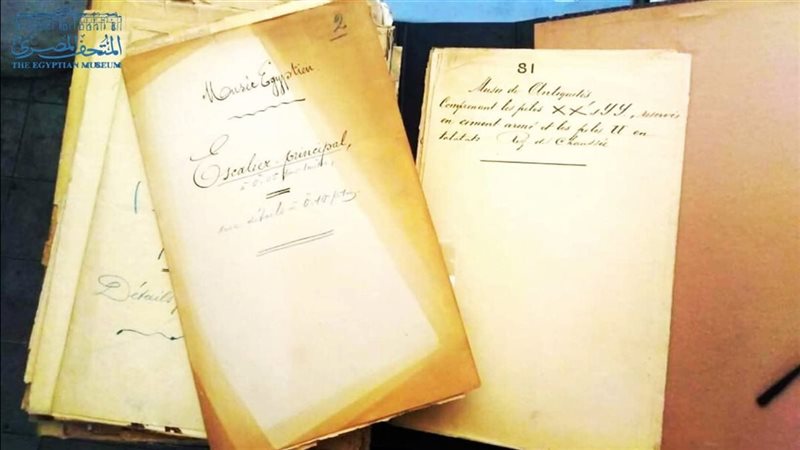 المتحف المصري
THE EGYPTIAN MUSEUM
2
Musée Egyptien
Escalier principal,
à 0.05
détails à 0.10 p.
Détails
81
Musée de Antiquités
Comprenant les poles XX's YY, reservés
en ciment armé et les poles U en
totalité Rez de Chaussée